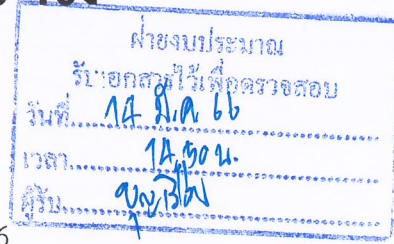 ฝ่ายงบประมาณ
รับเอกสารไว้เพื่อตรวจสอบ
วันที่ 14 มี.ค. 66
เวลา 14.30 น.
ผู้รับ